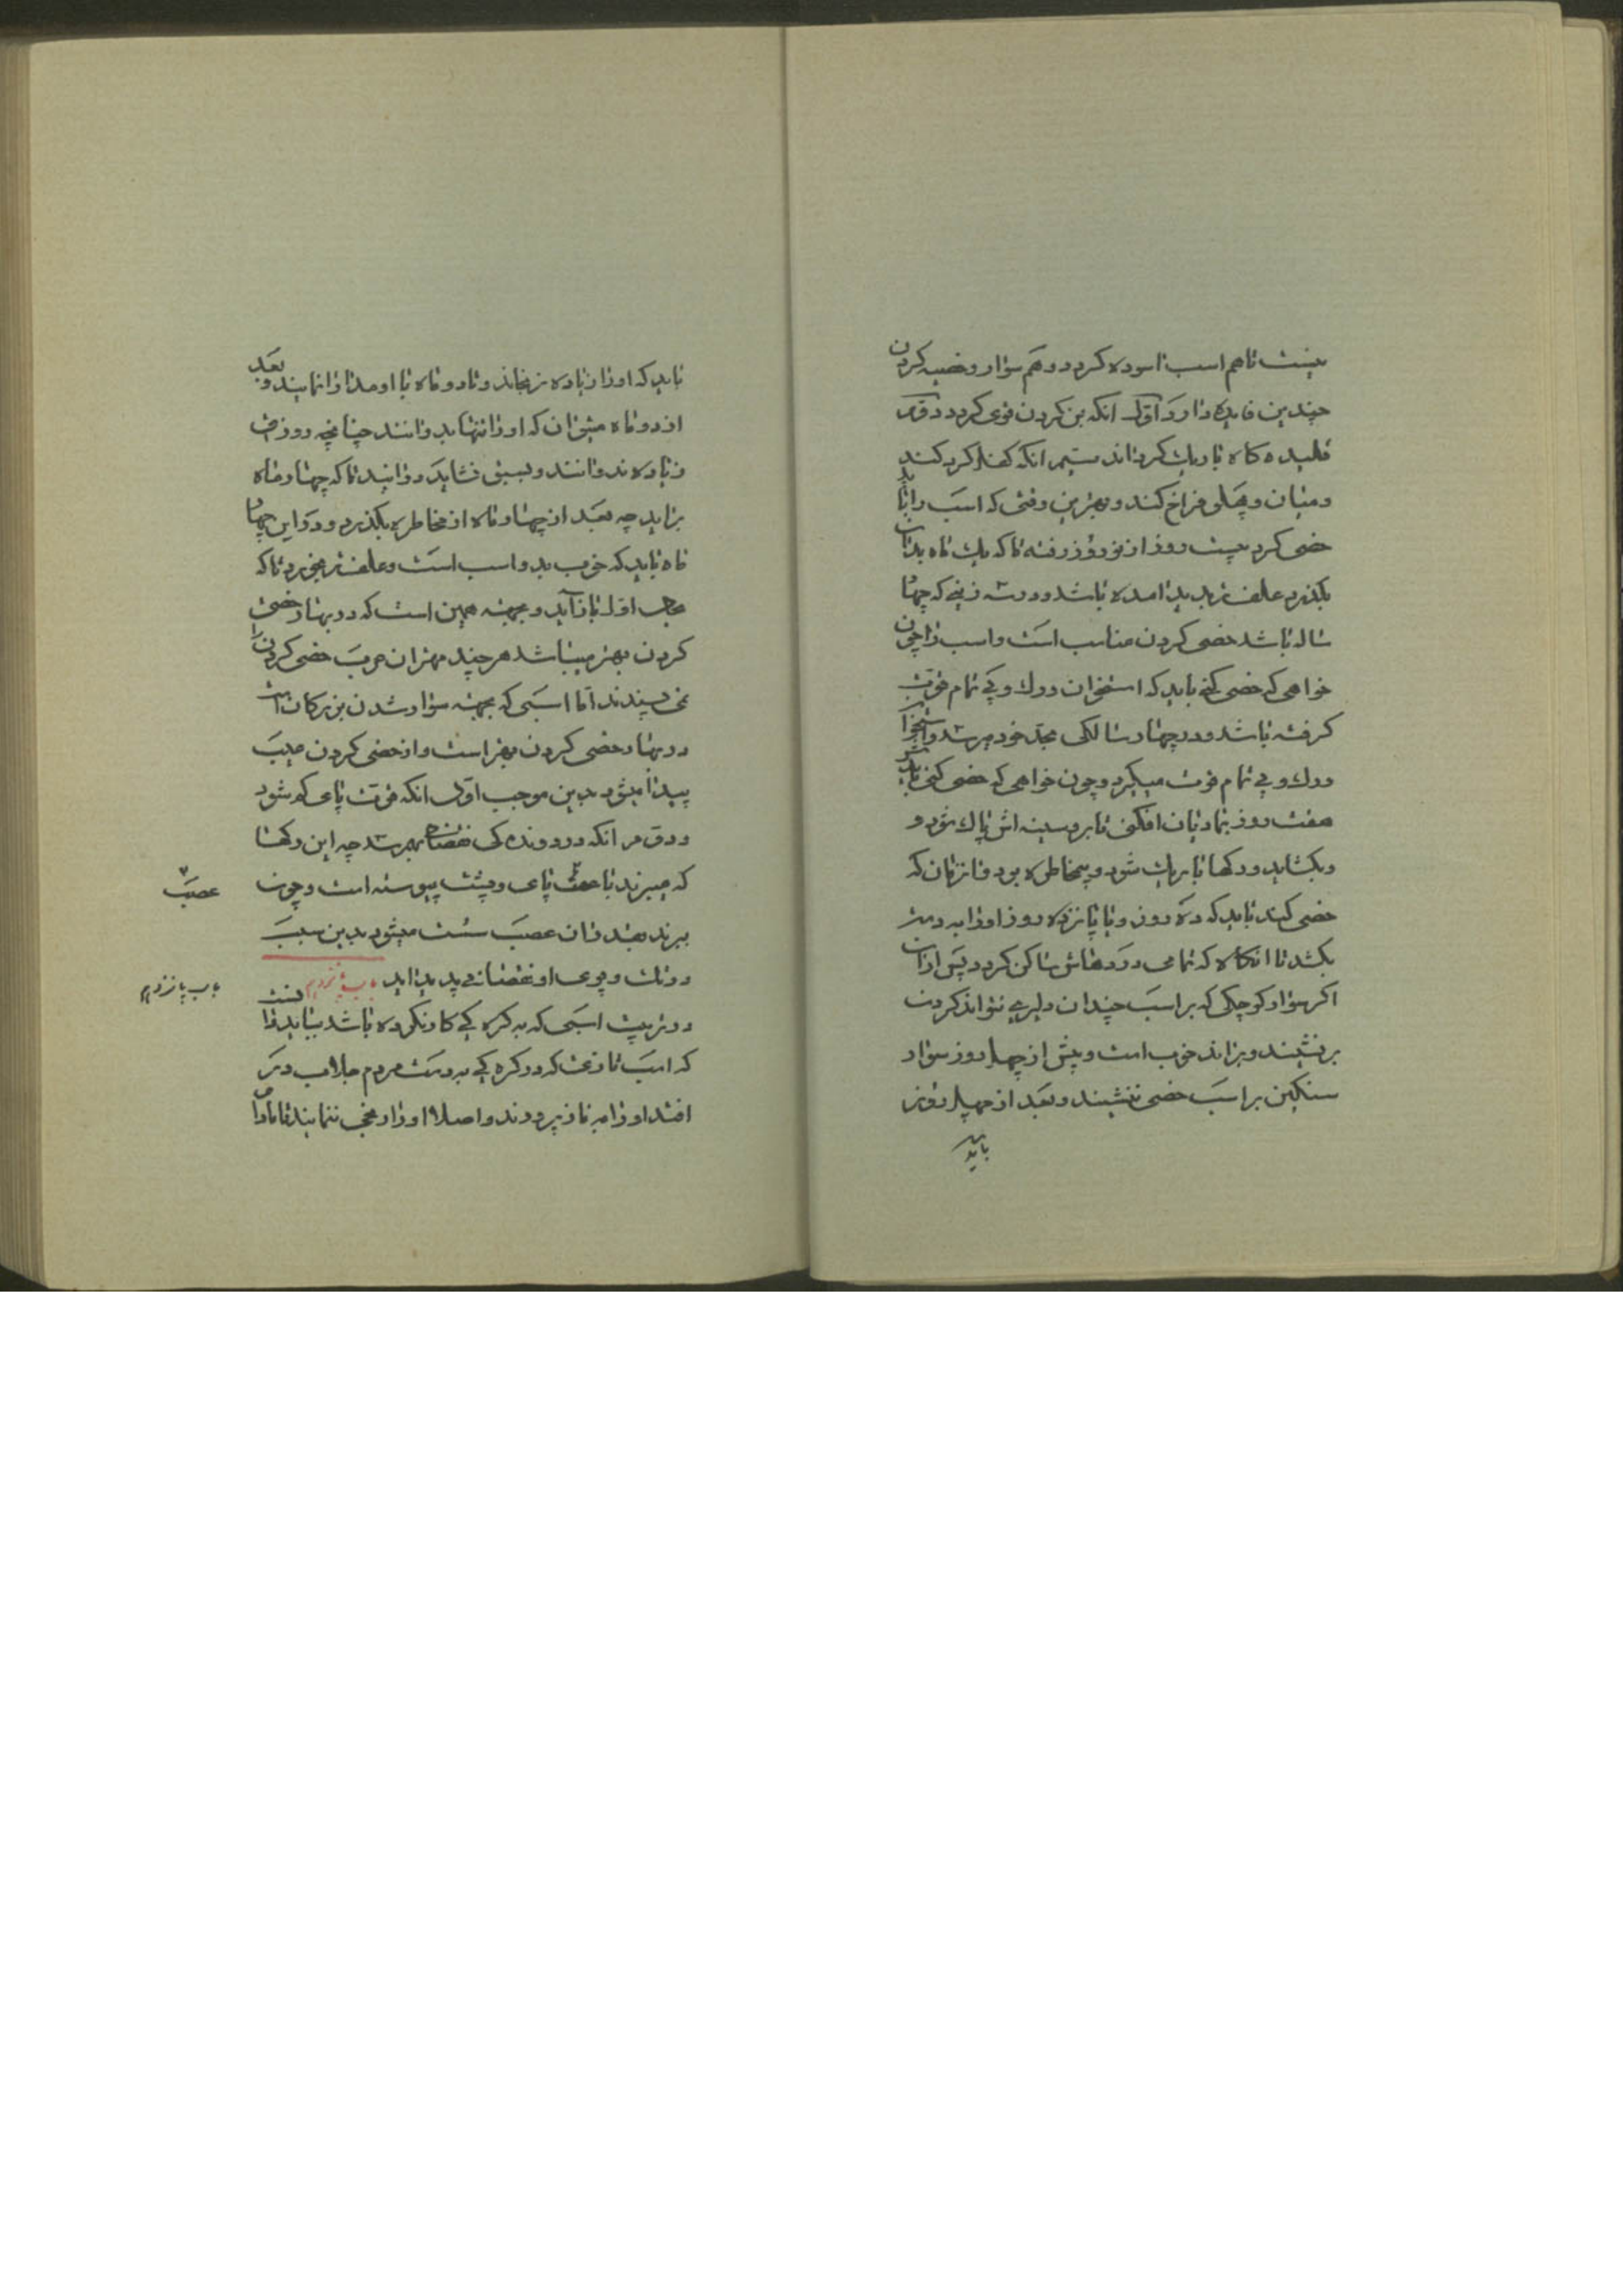 نیست تا هم اسب اسوده کردد و هم سوار و خصیه کردن
چندین فایده دارد اوّل انکه بن کردن قوی کردد دوّم
کاه باریک کرداند سیّم انکه کفل کرد کند
و میان و پهلی فراخ کند و بهترین وقتی که اسب را باید
خصی کرد بیست روز از نوروز رفته تا که یک ماه بدان
بکذرد علف تر بدید امده باشد و درست زینی که چهار
ساله باشد خصی کردن مناسب است و اسب را چون
خواهی که خصی کنی باید که استخوان و رک و پی تمام قوّت
کرفته باشد و در چهار سالکی بحدّ خود میرسد و استخوان
و رک و پی تمام قوت میکیرد و چون خواهی که خصی کنی باید
هفت روز بمادیان افکنی تا بر و سینه اش پاک شود و
وبکشاید و رکها باریک شود و بیمخاطره بود فا زمان که
خصی کنند باید که ده روز و یا پانزده روز او را به دست
بکشد تا انکاه که تمامی دردهاش ساکن کردد پس از ان
اکر سوار کوچکی که بر اسب چندان دلیری نتواند کردن
بر نشیند و براند خوب است و پیش از چهل روز سوار
سنکین بر اسب خصی ننشیند و بعد از چهل روز
باید
باید که او را زیاده نرنجاند و تا دو ماه با او مدارا نمایند و بعد
از دو ماه میتوان که او را تنها بدوانند چنانچه دو روز
زیاده ندوانند و بسبق نشاید دوانید تا که چهار ماه
براید چه بعد از چهار ماه از مخاطره بکذرد و در این چهار
ماه باید که خوب بدو اسب است و علف تر بخورد تا که
بحال اوّل باز آید و بجهته همین است که در بهار خصی
کردن بهتر میباشد هر چند مهتران عرب خصی کردن را
نمی پسندند امّا اسبی که بجهته سوار شدن بزرکان است
در بهار خصی کردن بهتر است و از خصی کردن عیب
پیدا میشود بدین موجب اوّل انکه قوّت پای کم شود
و دوّم انکه در دوندگی نقصان بهم رسد چه این رکها
که میبرند با عصب پای و پشت پیوسته است و چون
ببرند هند ان عصب سست میشود بدین سبب
در تک و پوی او نقصانی پدید اید باب پانزدهم
در تربیت اسبی که به کره کی کار نکرده باشد بباید دانست
که اسب تازی که در کره کی به دست مردم جلاب در
افتد او را به ناز پرورند و اصلا او را رنجی ننمایند تا مادام
عصب
باب پانزدهم